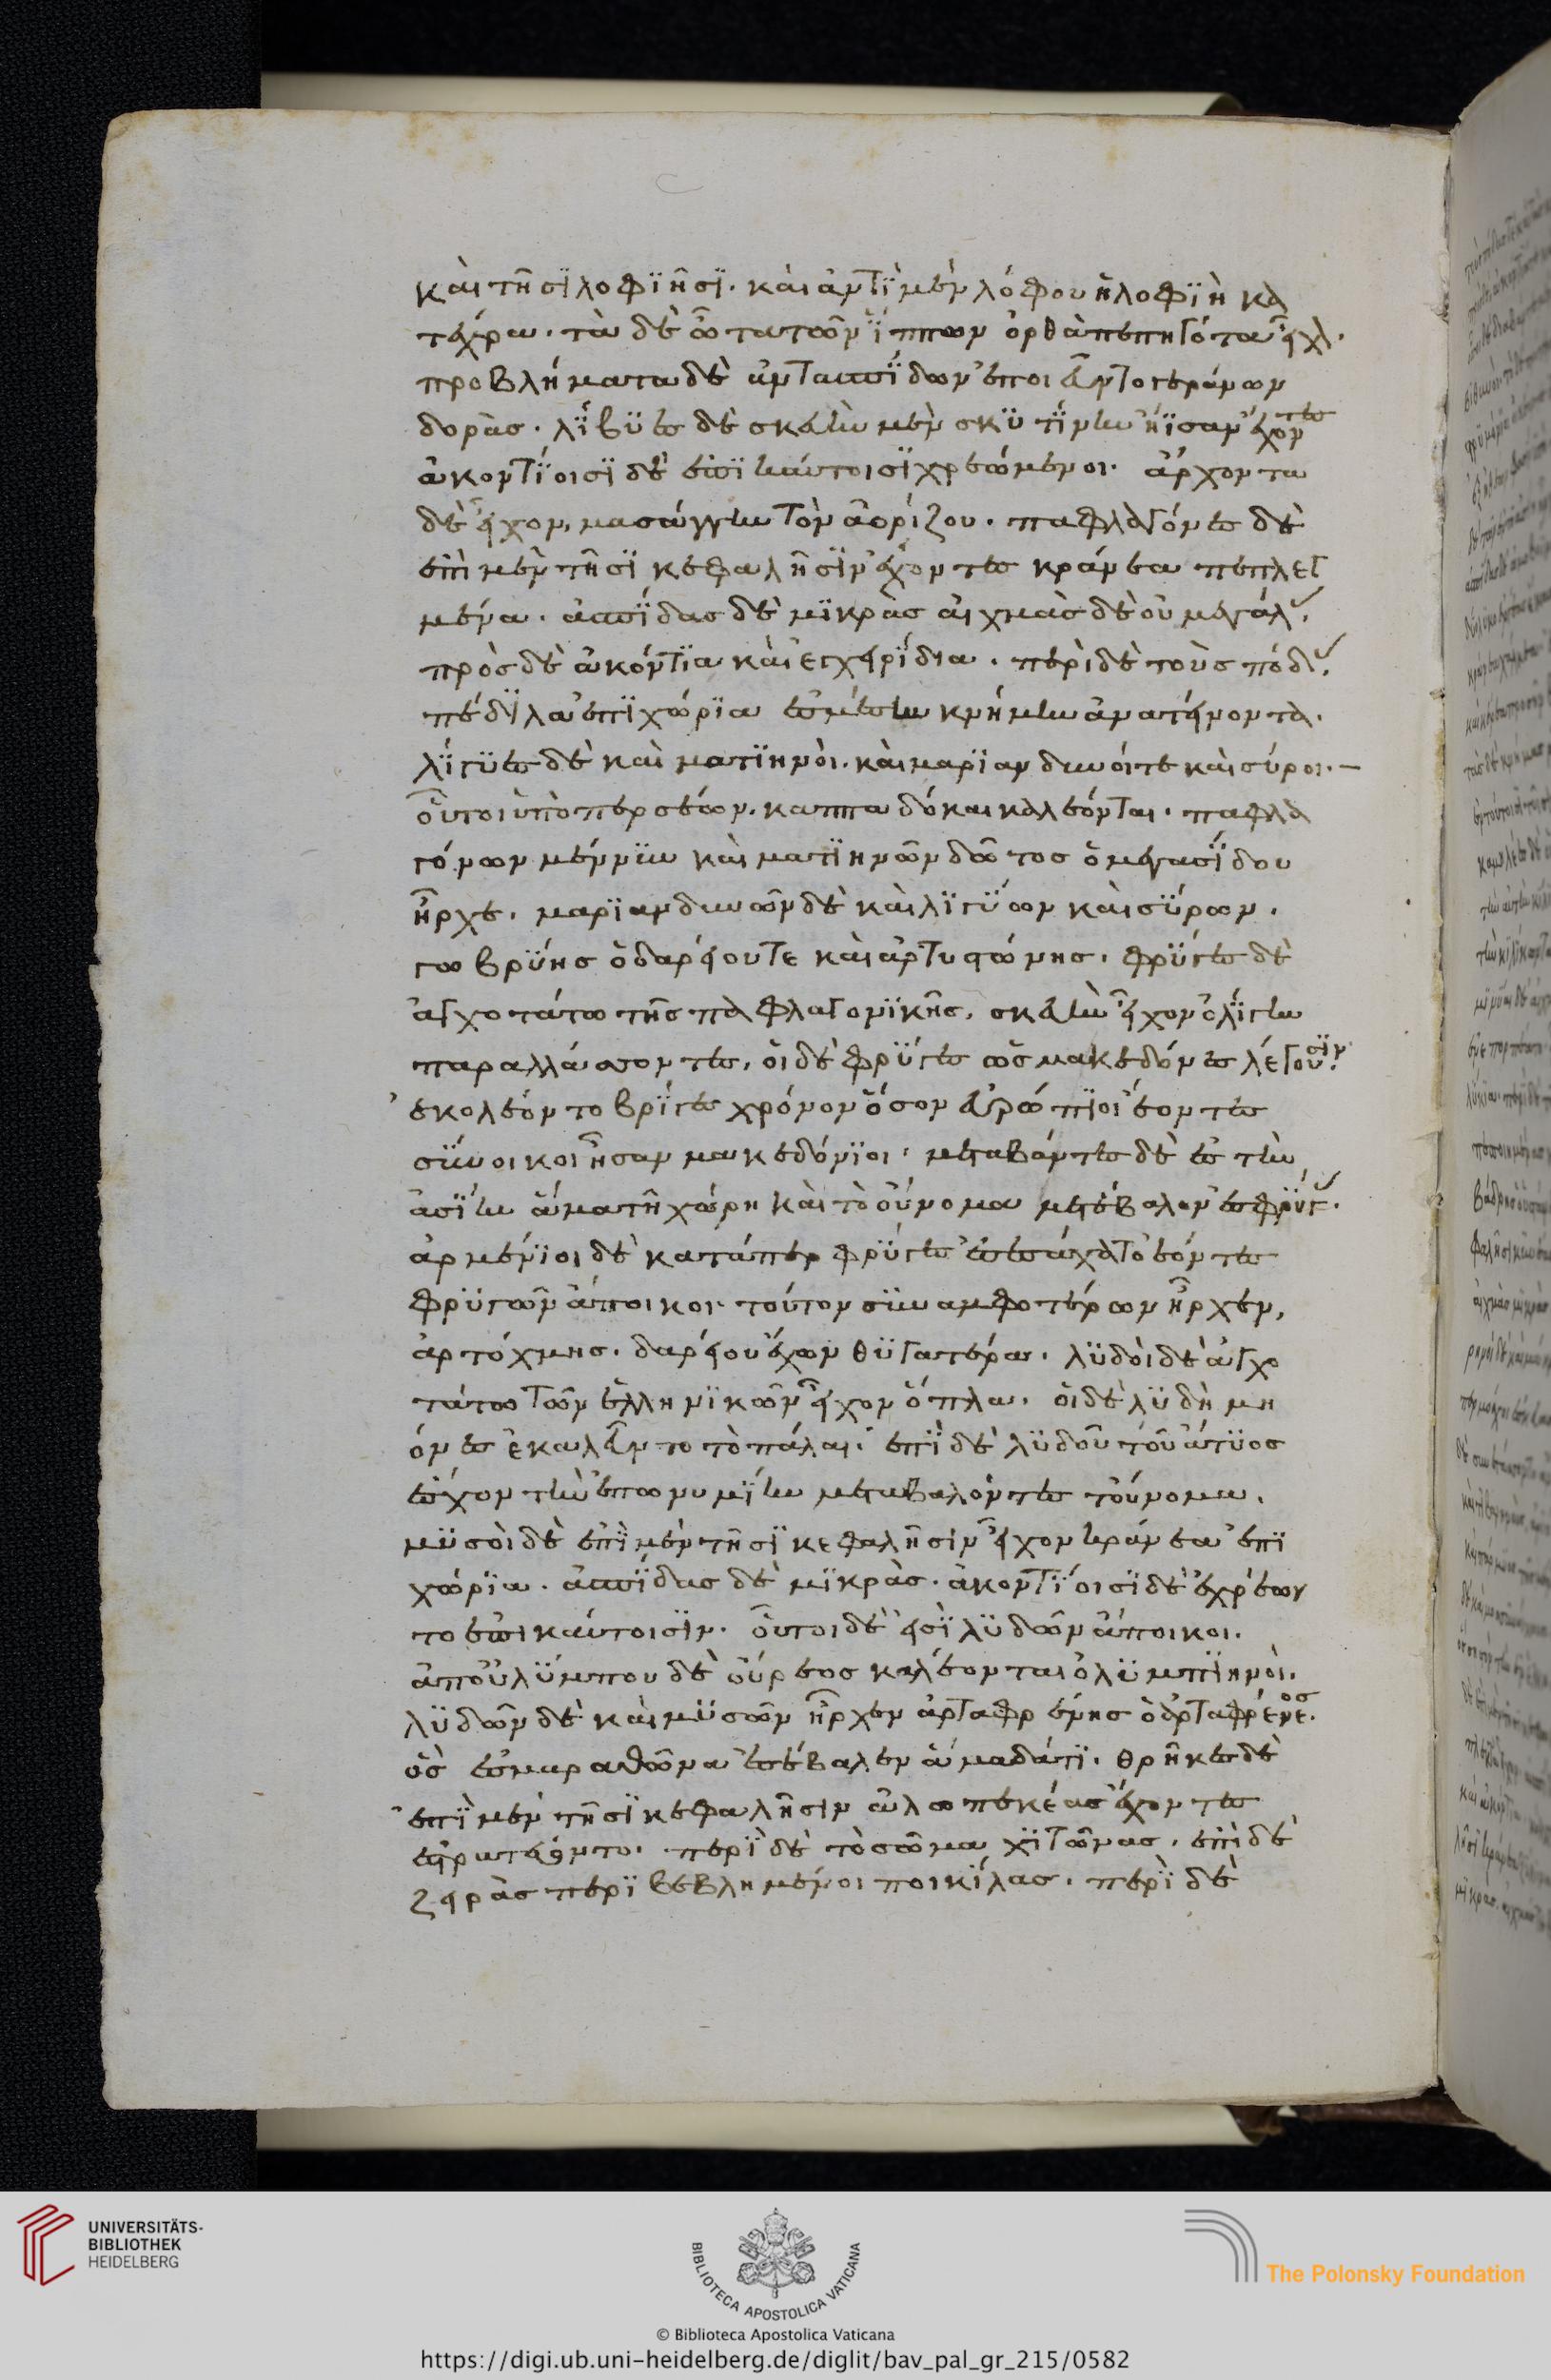 καὶ τῆσϊ λοφϊῆσϊ. καὶ ἀντῒ μὲν λόφου ἡ λοφϊὴ κα
τέχρα. τὰ δὲ ὦτα τῶν ἵππων ὀρθὰ πεπηγότα εἶχον.
προβλήματα δὲ ἀντ' ἀσπΐδων ἐποιεῦντο γεράνων
δοράς. λΐβϋες δὲ σκευὴν μὲν σκϋτΐνην ἤϊσαν ἔχοντες
ἀκοντΐοισϊ δὲ ἐπϊκαύτοισϊ χρεώμενοι. ἄρχοντα
δὲ εἶχον, μασάγγην τὸν ἀορίζου. παφλαγόνες δὲ
ἐπὶ μὲν τῆσϊ κεφαλῆσϊν ἔχοντες κράνεα πεπλεγ
μένα. ἀσπΐδας δὲ μϊκρὰς αἰχμὰς δὲ οὐ μεγάλας.
πρὸς δὲ ἀκόντϊα καὶ ἐγχερΐδια. περὶ δὲ τοὺς πόδας.
πέδϊλα ἐπϊχώρϊα ἐς μέσην κνήμην ἀνατείνοντα.
λΐγϋες δὲ καὶ ματϊηνοὶ. καὶ μαρϊανδυνοί τε καὶ σύροι.
οὗτοι ὑπὸ περσέων. καππαδόκαι καλεόνται. παφλα
γόνων μέν νϋν καὶ ματϊηνῶν δῶτος ὁ μεγασΐδου
ἦρχε. μαρϊανδυνῶν δὲ καὶ λϊγΰων καὶ σΰρων.
γωβρΰης ὁ δαρείου τε καὶ ἀρτυστώνης. φρΰγες δὲ
ἀγχοτάτω τῆς παφλαγονϊκῆς. σκευὴν εἶχον ὀλΐγην
παραλλάσσοντες. οἱ δὲ φρΰγες ὡς μακεδόνες λέγουσϊν.
ἐκαλεόντο βρΐγες χρόνον ὅσον εὐρώπϊοι ἐόντες
σΰνοικοι ἦσαν μακεδόνϊοι. μεταβάντες δὲ ἐς τὴν
ἀσΐην ἅμα τῆ χώρη καὶ τὸ οὔνομα μετέβαλον ἐς φρΰγας.
ἀρμένϊοι δὲ κατάπερ φρΰγες ἐσεσάχατο ἐόντες
φρϋγῶν ἄποικοι. τούτον σϋναμφοτέρων ἦρχεν,
ἀρτόχμης. δαρείου ἔχων θϋγατέρα. λϋδοὶ δὲ ἀγχο
τάτω τῶν ἑλληνϊκῶν εἶχον ὅπλα. οἱ δὲ λϋδὴ μη
όνες ἐκαλεῦντο τὸ πάλαι. ἐπῒ δὲ λϋδοῦ τοῦ ἄτϋος
ἔσχον τὴν ἐπωνυμΐην μεταβαλόντες τοὔνομα.
μϋσοὶ δὲ ἐπῒ μὲν τῆσϊ κεφαλῆσϊν εἶχον κράνεα ἐπϊ
χώρϊα. ἀσπΐδας δὲ μϊκρὰς. ἀκοντΐοισϊ δὲ ἐχρέων
το ἐπικαύτοισϊν. οὗτοι δὲ εἰσῒ λϋδῶν ἄποικοι.
ἀπ' οὐλΰμπου δὲ οὔρεος καλέονται ὀλϋμπϊηνοὶ.
λϋδῶν δὲ καὶ μϋσῶν ἦρχεν ἀρταφρένης ὁ ἀρταφρένεος.
ὃς ἐς μαραθῶνα ἐσέβαλεν ἅμα δάτϊ. θρῆκες δὲ
ἐπῒ μὲν τῆσϊ κεφαλῆσιν ἀλωπεκέας ἔχοντες
ἐστρατεύοντο. περῒ δὲ τὸ σῶμα χϊτῶνας. ἐπὶ δὲ
ζειρὰς περϊβεβλημένοι ποικΐλας. περῒ δὲ
UNIVERSITÄTS-
BIBLIOTHEK
HEIDELBERG
BIBLIOTECA APOSTOLICA VATICANA
The Polonsky Foundation
© Biblioteca Apostolica Vaticana
https://digi.ub.uni-heidelberg.de/diglit/bav_pal_gr_215/0582